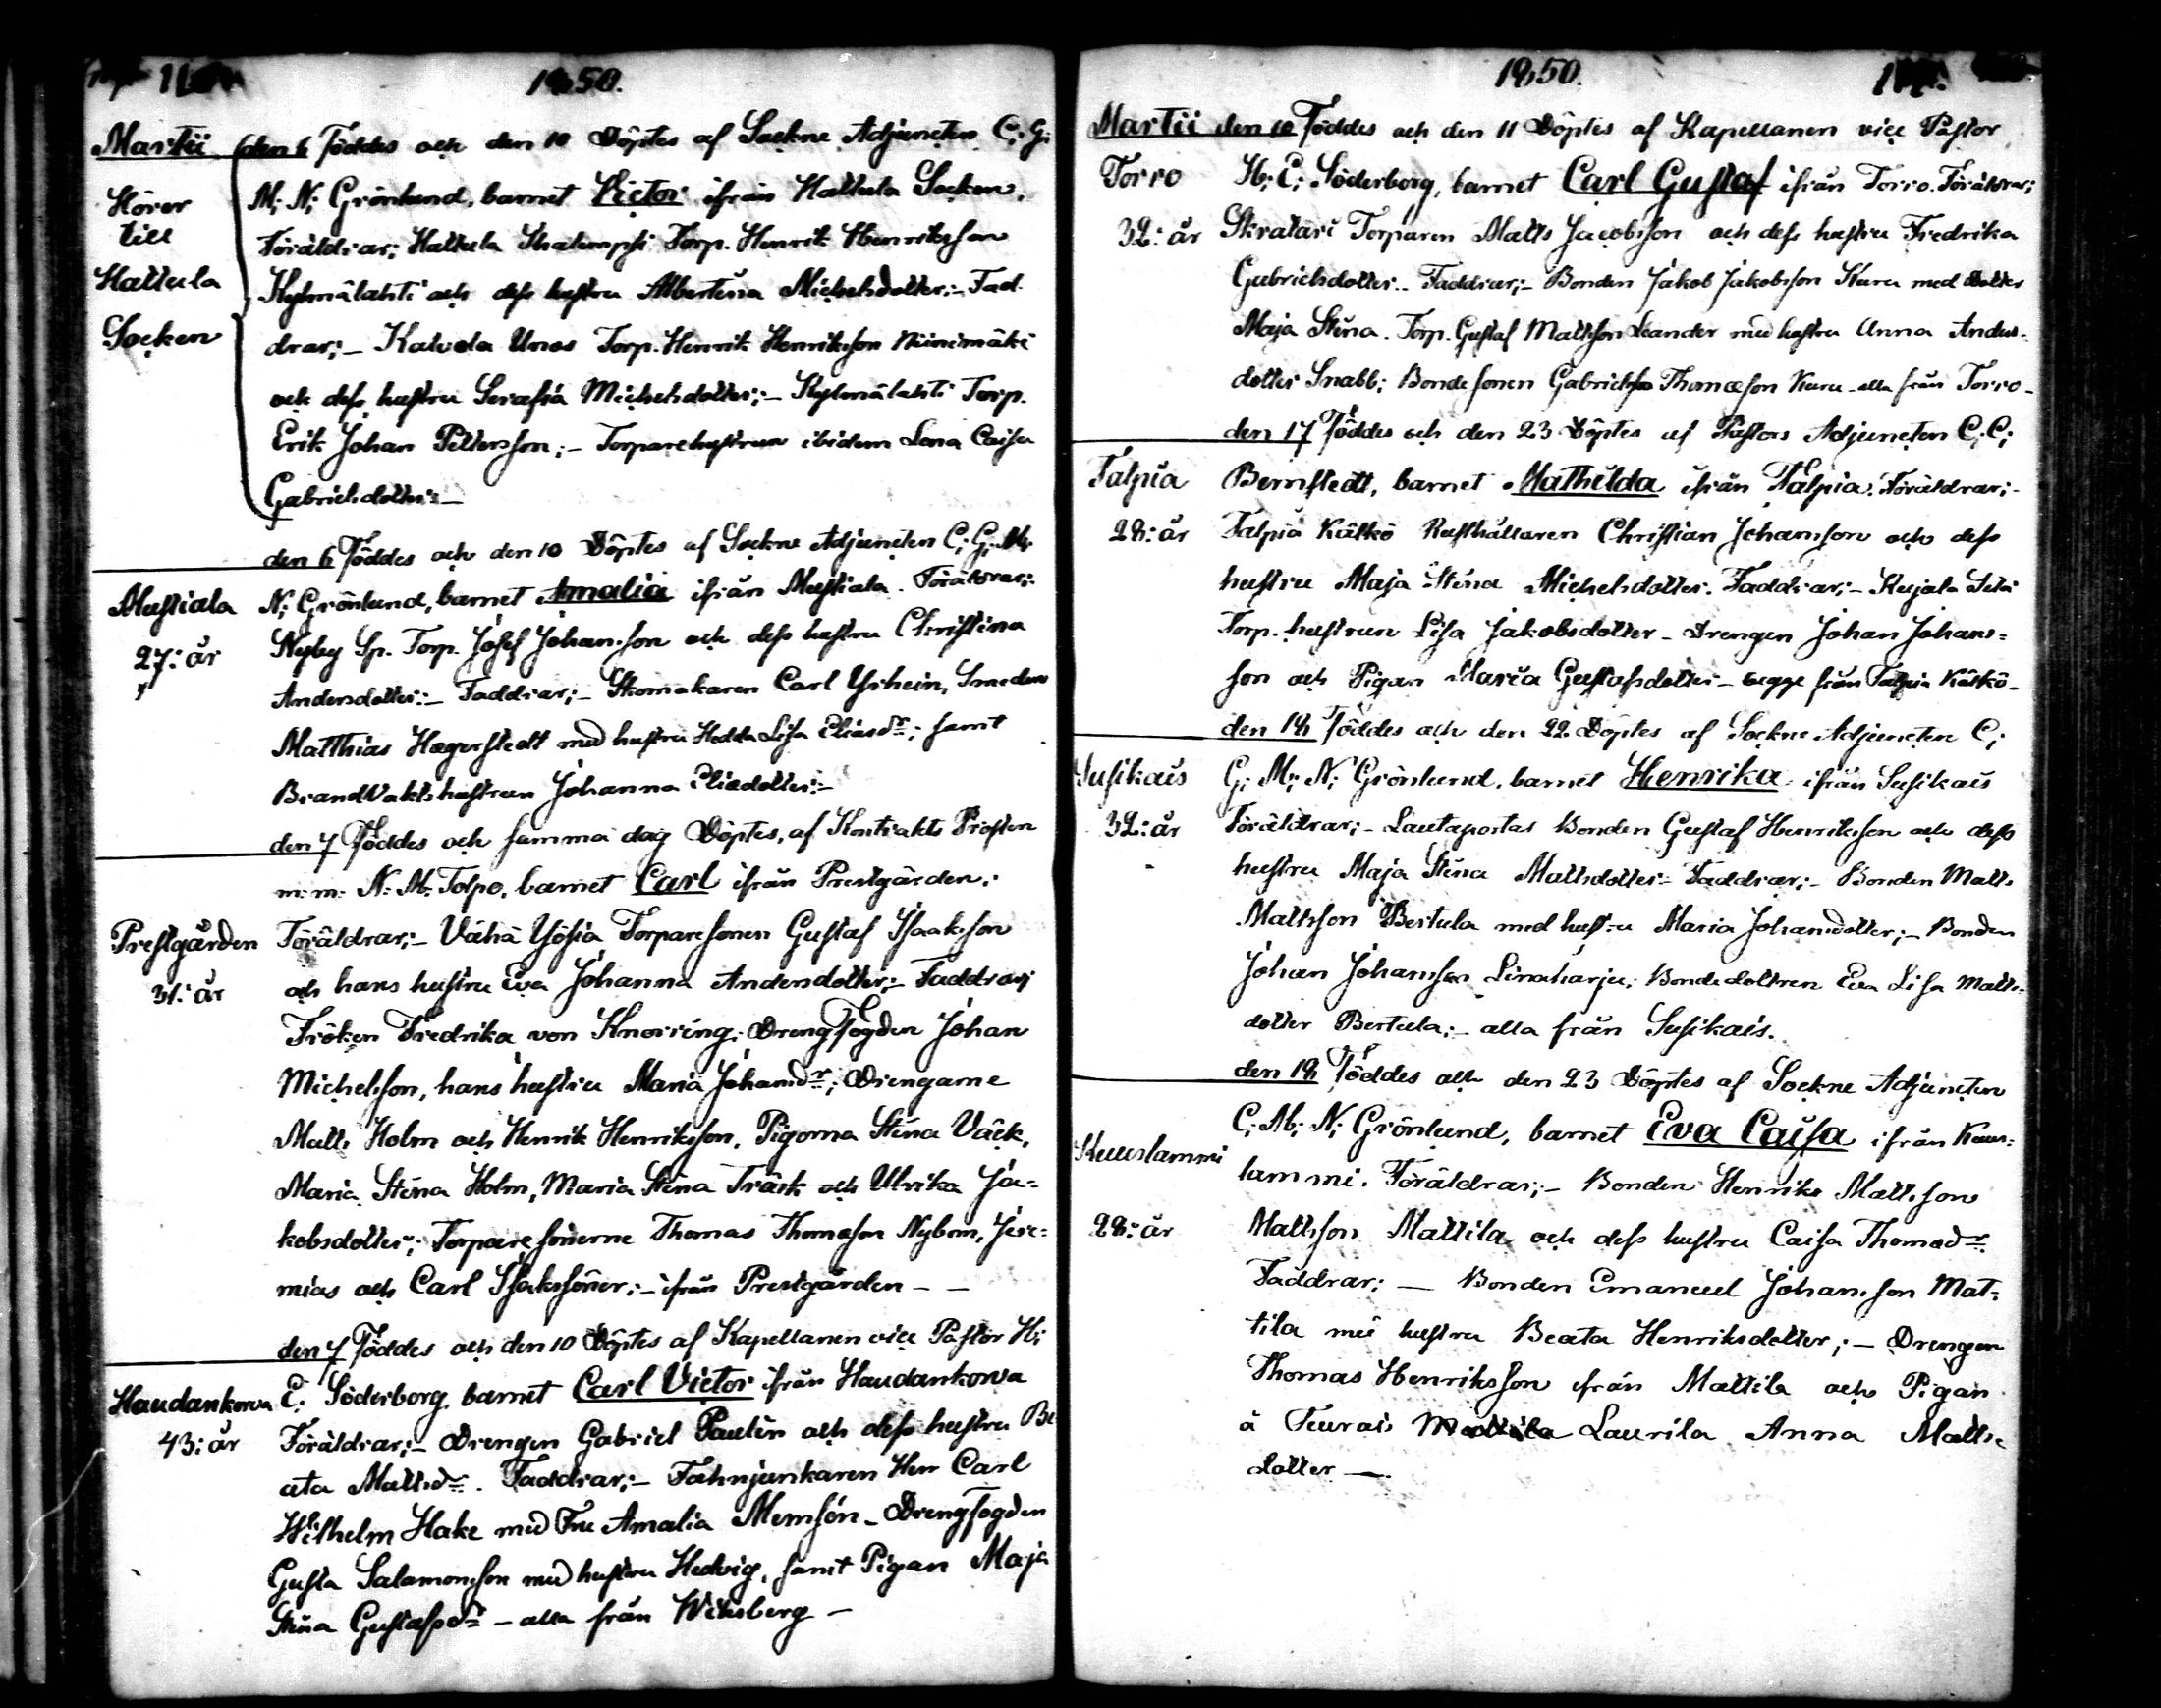 1850.
Martii den 6 Föddes och den 10 Döptes af Sockne Adjuncten C; G;
M; N; Grönlund, barnet Victor ifrån Hattula Socken,
Hörer
till
Hattula
Socken
Föräldrar; Hattula Torp. Henrik Henriksson
Kylmälahti och dess hustru Albertina Michelsdotter;– Fad-
drar;– Kalvola Unos Torp. Henrik Henriksson Niinimäki
och dess hustru Serafia Michelsdotter;– Kylmälahti Torp.
Erik Johan Pettersson;– Torparehustrun ibidem Lena Caisa
Gabrielsdotter;–
den 6 Föddes och den 10 Döptes af Sockne Adjuncten C; G; M;
Mustiala N; Grönlund, barnet Amalia ifrån Mustiala. Föräldrar;
27: år Nyby Sp. Torp. Josef Johansson och dess hustru Christina
Andersdotter;– Faddrar;– Skomakaren Carl Smeden
Matthias Hägerstedt med hustru Hedda Lisa Eliasdr; samt
BrandVaktshustrun Johanna Eliedotter;–
den 7 Föddes och samma dag Döptes, af Kontrakts Prosten
m: m: N: M: Tolpo, barnet Carl ifrån Prestgården;
Prestgården Föräldrar;– Vähä Torparesonen Gustaf Isaaksson
31: år och hans hustru Eva Johanna Andersdotter;– Faddrar;
Fröken Fredrika von Knorring; Drengfogden Johan
Michelsson, hans hustru Maria Johansdr; Drengarne
Matts Holm och Henrik Henriksson, Pigorna Stina Väck,
Maria Stina Holm, Maria Stina Träsk och Ulrika Ja-
kobsdotter; Torparesönerne Thomas Thomasson Nybom, Jere-
mias och Carl Isakssöner;– ifrån Prestgården – –
den 7 Föddes och den 10 Döptes af Kapellanen vice Pastor H;
Haudankorva E; Söderborg, barnet Carl Victor ifrån Haudankorva
43: år Föräldrar;– Drengen Gabriel Paulin och dess hustru Be
ata Mattsdr. Faddrar;– Fahnjunkaren Herr Carl
Wilhelm Hake med Fru Amalia Memsén – Drengfogden
Gusta Salamonsson med hustru Hedvig, samt Pigan Maja
Stina Gustafsdr – alla från Wiksberg –
1850.
Martii den 10 Föddes och den 11 Döptes af Kapellanen vice Pastor
Torro H; E; Söderborg, barnet Carl Gustaf ifrån Torro. Föräldrar;
32: år Skratari Torparen Matts Jacobsson och dess hustru Fredrika
Gabrielsdotter.. Faddrar;– Bonden Jakob Jakobsson Kuru med dotter
Maja Stina. Torp. Gustaf Mattsson Leander med hustru Anna Anders-
dotter Snabb; Bondesonen Gabriel Thomasson Kuru – alla från Torro –
den 17 Föddes och den 23 Döptes af Pastors Adjuncten C; C;
Talpia Bernstedt, barnet Mathilda ifrån Talpia. Föräldrar;–
28: år Talpia Kälkö Rusthållaren Christian Johansson och dess
hustru Maja Stina Michelsdotter. Faddrar;– Kujala
Torp. hustrun Lisa Jakobsdotter – Drengen Johan Johans-
son och Pigan Maria Gustafsdotter – begge från Talpia Kälkö –
den 18 Föddes och den 22 Döptes af Sockne Adjuncten C;
Susikais G; M; N; Grönlund, barnet Henrika ifrån Susikais
32: år Föräldrar;– Lautaportas Bonden Gustaf Henriksson och dess
hustru Maja Stina Mattsdotter= Faddrar;– Bonden Matts
Mattsson Bertula med hustru Maria Johansdotter;– Bonden
Johan Johansson Linnaharju; Bondedottren Eva Lisa Matts-
dotter Bertula;– alla från Susikais.
den 18 Föddes och den 23 Döptes af Sockne Adjuncten
C; M; N; Grönlund, barnet Eva Caisa ifrån Kuus-
Kuuslammi lammi. Föräldrar;– Bonden Henrik Mattsson
28: år Mattsson Mattila och dess hustru Caisa Thomasdr
Faddrar; – Bonden Emanuel Johansson Mat-
tila med hustru Beata Henriksdotter;– Drengen
Thomas Henriksson ifrån Mattila och Pigan
å Teuro Laurila Anna Matts-
dotter –.